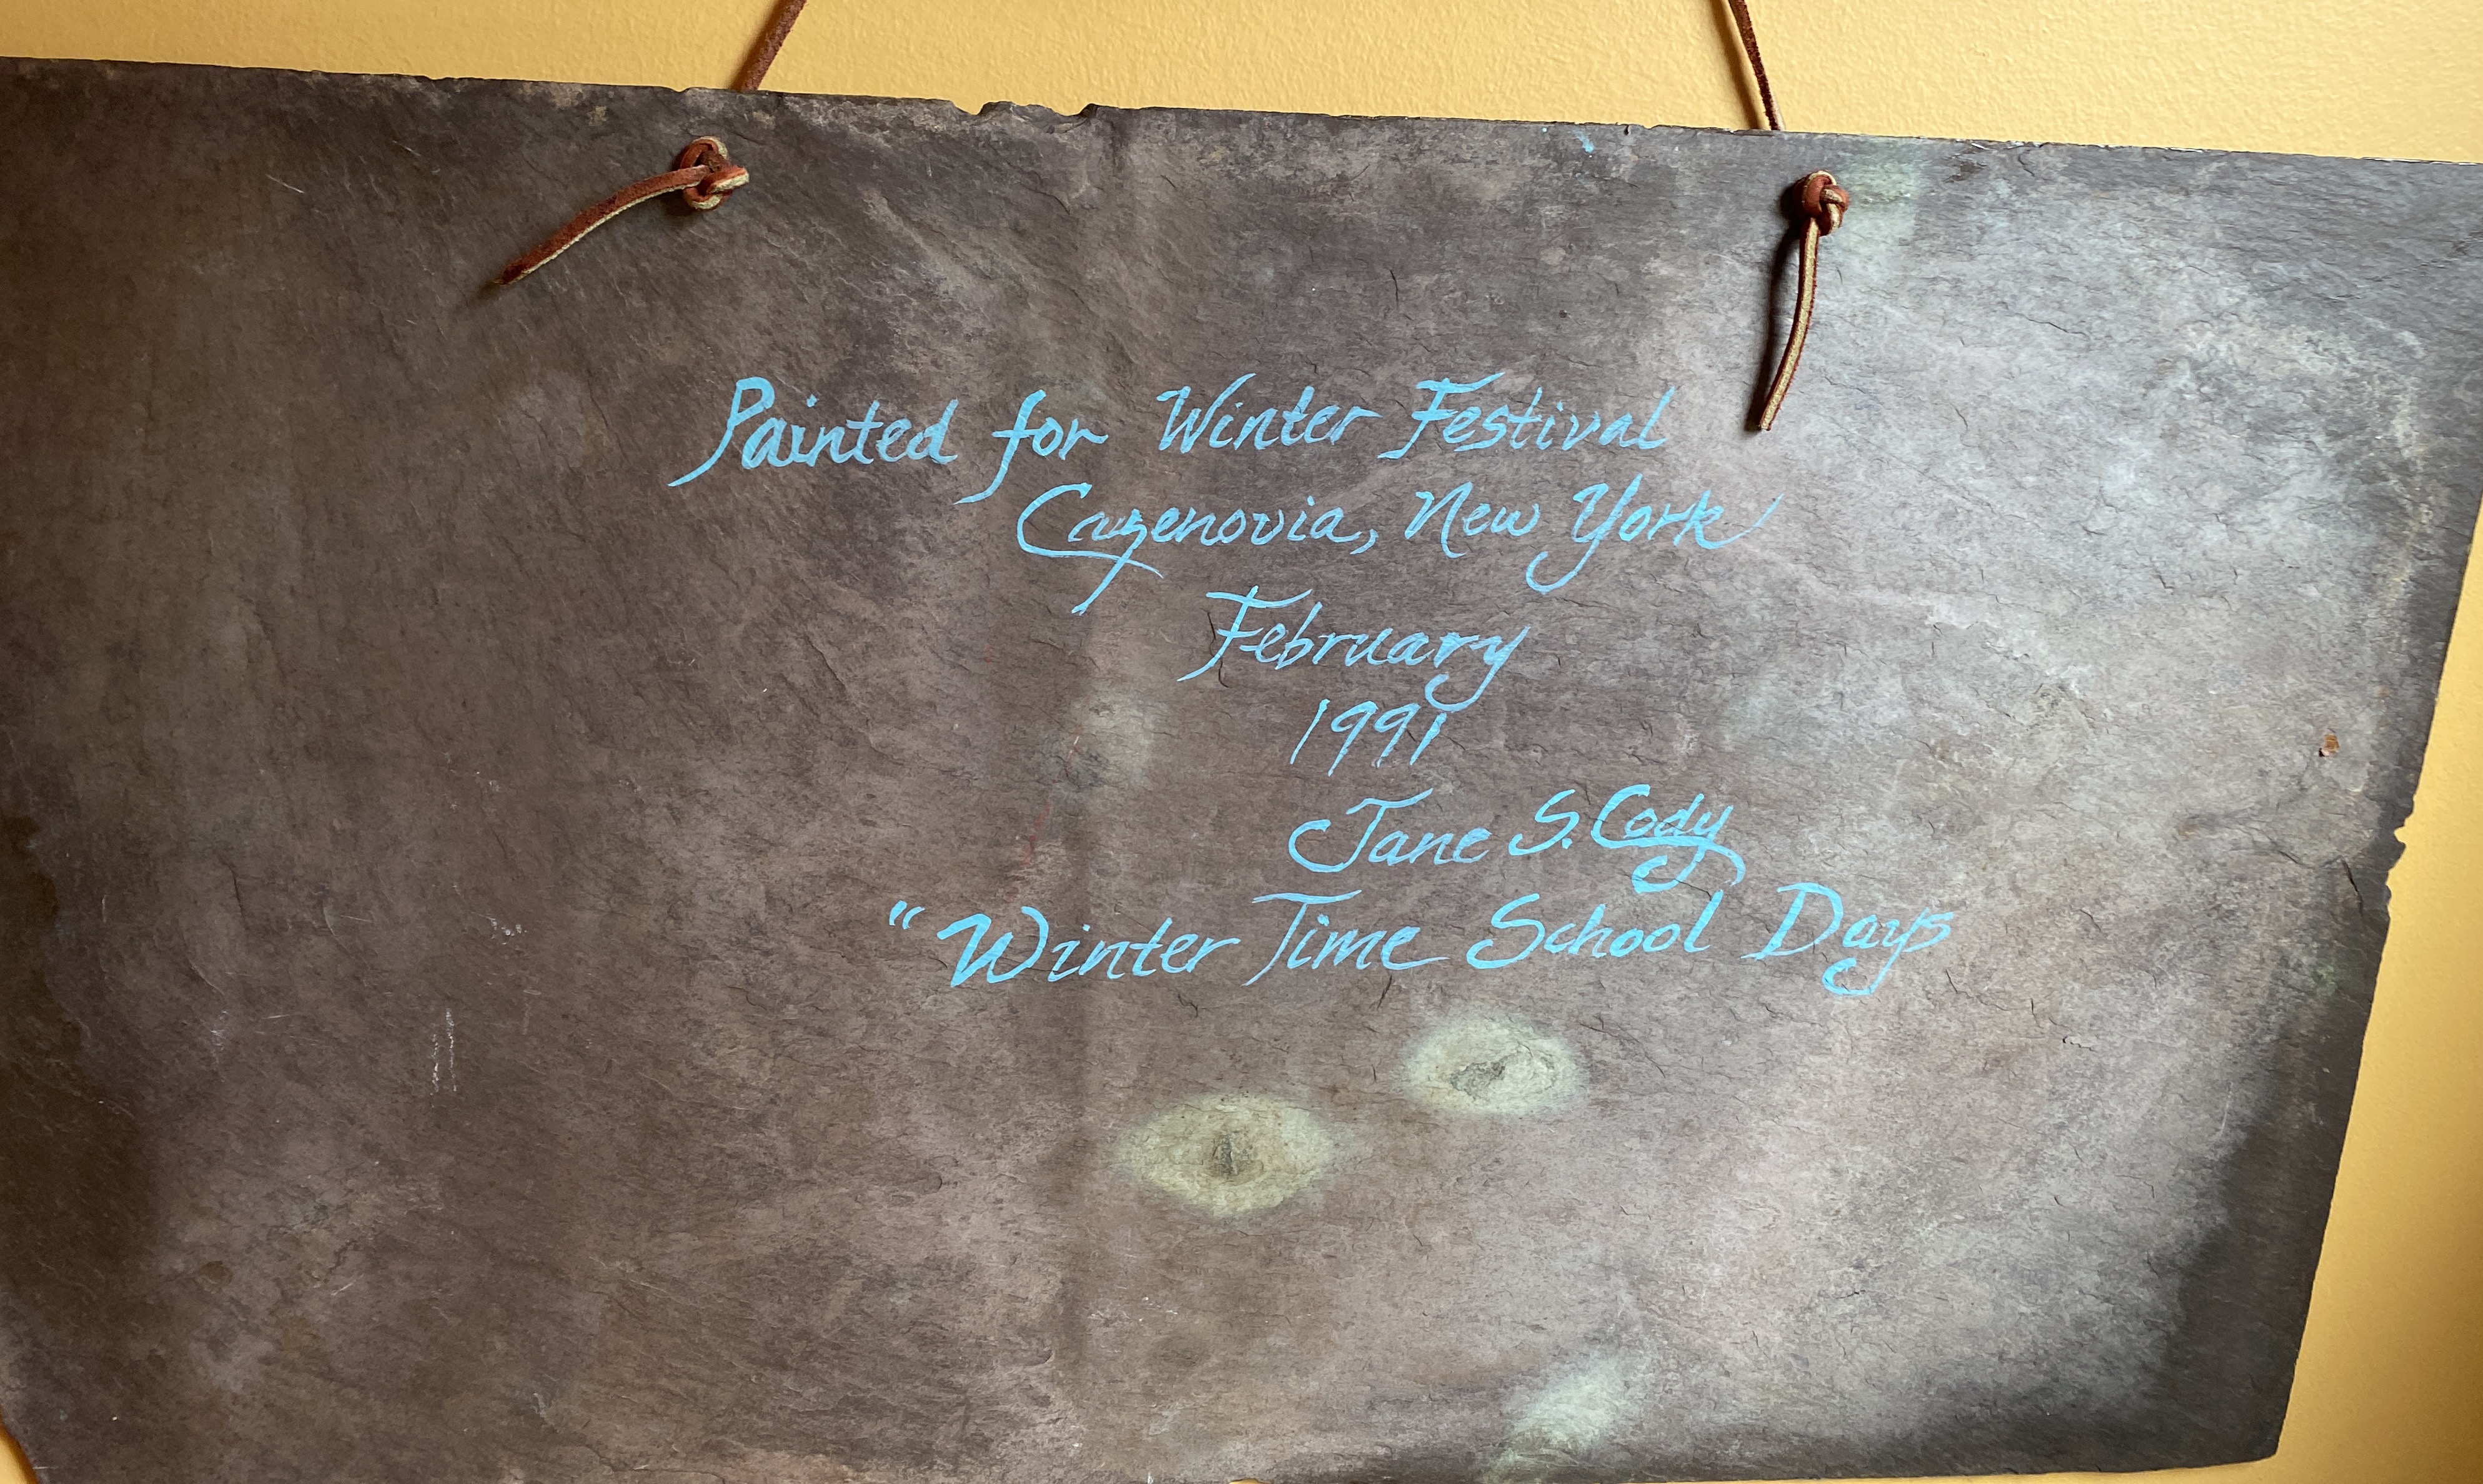 Painted for Winter Festival
Cazenovia, New York
February
1991
Jane S. Cody
"Winter Time School Days